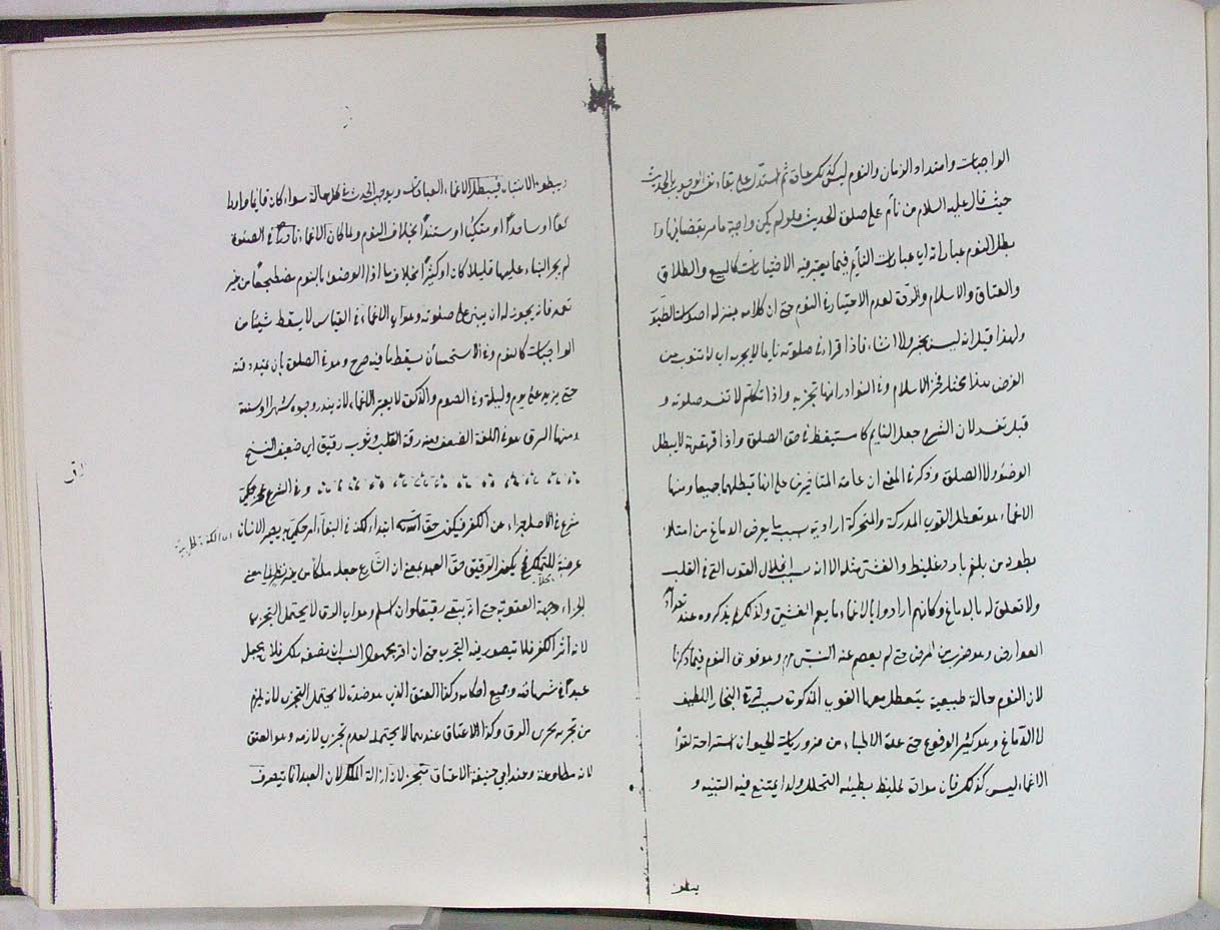 الواجبات وامتداد الزمان والنوم ليس كذلك عادة ثم استدل على بقاء نفس الوجوب بالحديث
حيث قال عليه السلام من نام على صلوة الحديث ولو لم يكن واجبة ما مر بقضائها وا
بطل النوم عباراته اى عبارات النايم فيما يعتبر فيه الاختيارات كالبيع والطلاق
والعتاق والاسلام والردة لعدم الاختيار فى النوم حتى ان كلامه بمنزلة اصوات الطيور
ولهذا قيل انه ليس بخبر ولا انشاء فاذا قرا فى صلوته نايما لا يجزيه اى لا تنوب عن
الفرض هذا مختار فخر الاسلام وفى النوادر انها تجزيه واذا تكلم لا تفسد صلوته و
قيل تفسد لان الشرع جعل النايم كالمستيقظ فى حق الصلوة واذا قهقهة لا يبطل
الوضوء ولا الصلوة وذكر فى المغنى ان عامة المتاخرين على انها تبطلهما جميعا ومنها
الاغماء هو تعطل القوى المدركة والمحركة ارادية بسبب ما يعرض الدماغ من امتلاء
بطونه من بلغم بارد غليظ والغشى مثله الا انه بسبب انحلال القوى التى فى القلب
ولا تعلق له بالدماغ وكانهم ارادوا بالاغماء ما يعم الغشى ولذلك لم يذكروه عند تعداد
العوارض وهو ضرب من المرض حتى لم يعصم عنه النبى وهو فوق النوم فيما ذكرنا
لان النوم حالة طبيعية يتعطل معها القوى المذكورة بسبب البخار اللطيف
لا الدماغ وهو كثير الوقوع حتى عده الاطباء من ضروريات الحيوان استراحة لقواه
الاغماء ليس كذلك فان موادة غليظ بطيئة التحلل ولهذا يمتنع فيه التنبيه و
يبطؤ
يبطؤ الانتباه فيبطل الاغماء العبارات ويوجب الحدث فى كل حالة سواء كان قايما او را
كعا او ساجدا او متكيا او مستندا بخلاف النوم ولما كان الاغماء نادرا فى الصلوة
لم يجز البناء عليها قليلا كان او كثيرا بخلاف ما اذا الوضوء بالنوم مضطجعا من غير
تعمد فانه يجوز له ان يبنى على صلوته وهو اى الاغماء فى القياس لا يسقط شيئا من
الواجبات كالنوم وفى الاستحسان يسقط ما فيه حرج وهو فى الصلوة بان
حتى يزيد على يوم وليلة وفى الصوم والزكوة لا يعتبر الاغماء لانه يندر وجوده شهرا او سنة
ومنها الرق هو فى اللغة الضعف يعنى رقة القلب وثوب رقيق اى ضعيف النسج
وفى الشرع عجز حكمى
شرع فى الاصل جزاء عن الكفر فيكون حق الله ابتداء لكنه فى البقاء امر حكمى به يصير الانسان
عرضة للتملك يكون الرقيق حق العبد بمعنى ان الشارع جعله ملكا من غير نظر الى معنى
الجزاء وجهة العقوبة حتى انه يبقى رقيقا وان اسلم وهو اى الرق لا يحتمل التجزى
لانه اثر الكفر فلا يتصور فيه التجزى حتى ان اقر مجهول النسب ان نصفه ملك فلان يجعل
عبدا فى شهادته وجميع احكامه وكذا العتق الذى هو ضده لا يحتمل التجزى لانه يلزم
من تجزيه تجزى الرق وكذا الاعتاق عندهما لا يحتمله لعدم تجزى لازمه وهو العتق
لانه مطاوعه وعند ابى حنيفة الاعتاق متجز لانه ازالة الملك لان العبد انما يتصرف